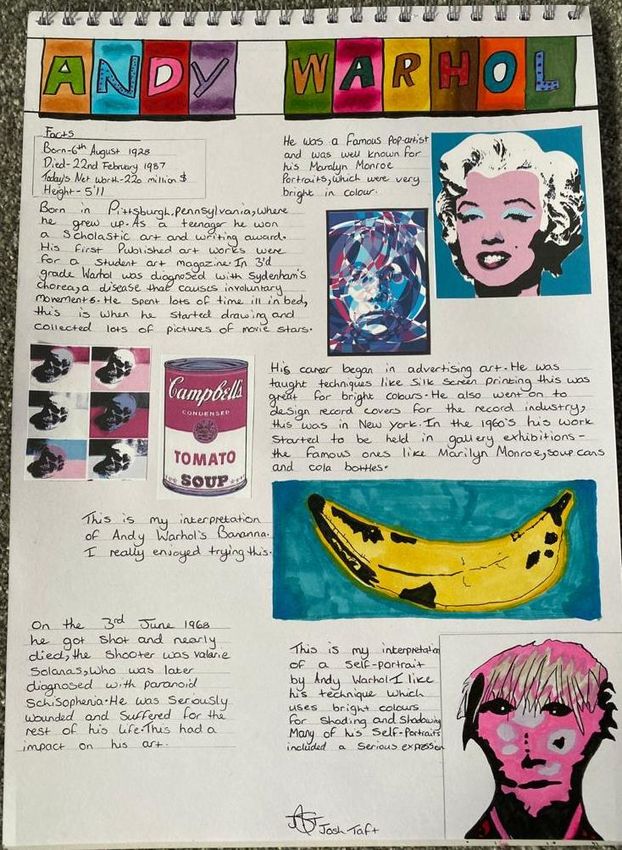 ANDY WARHOL
Facts
Born-6th August 1928
Died-22nd February 1987
Today's Net worth-220 million $
Height - 5'11
He was a famous Pop-artist
and was well known for
his Marolyn Monroe
Portraits, which were very
bright in colour.
Born in Pittsburgh, Pennsylvania, where
he grew up. As a teenager he won
a Scholastic art and writing award.
His first Published art works were
for a student art magazine. In 3rd
grade Warhol was diagnosed with Sydenham's
Chorea, a disease that causes involuntary
movements. He spent lots of time ill in bed,
this is when he started drawing and
collected lots of pictures of movie stars.
Campbell's
CONDENSED
TOMATO
SOUP
His career began in advertising art. He was
taught techniques like Silk Screen printing this was
great for bright colours. He also went on to
design record covers for the record industry,
this was in New York. In the 1960's his work
started to be held in gallery exhibitions -
the famous ones like Marilyn Monroe, soup cans
and cola bottles.
This is my interpretation
of Andy Warhol's Bananna.
I really enjoyed trying this.
On the 3rd June 1968
he got shot and nearly
died, the shooter was valarie
Solanas, who was later
diagnosed with paranoid
Schisophenia. He was Seriously
wounded and suffered for the
rest of his life. This had a
impact on his art.
This is my interpretation
of a self-portrait
by Andy Warhol. I like
his technique which
uses bright colours
for shading and shadowing
Many of his Self-Portraits
included a serious expression
Josh Taft